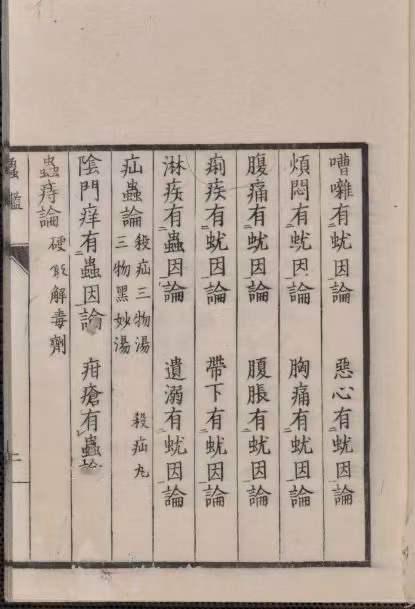 嘈雜有蚘因論　惡心有蚘因論
煩悶有蚘因論　胸痛有蚘因論
腹痛有蚘因論　腹脹有蚘因論
痢疾有蚘因論　帶下有蚘因論
淋疾有蟲因論　遺溺有蚘因論
疝蟲論
殺疝三物湯　殺疝丸
三物黑妙湯
陰門痒有蟲因論　疳瘡有蟲論
蟲痔論　硬解毒劑
蟲鑑　上